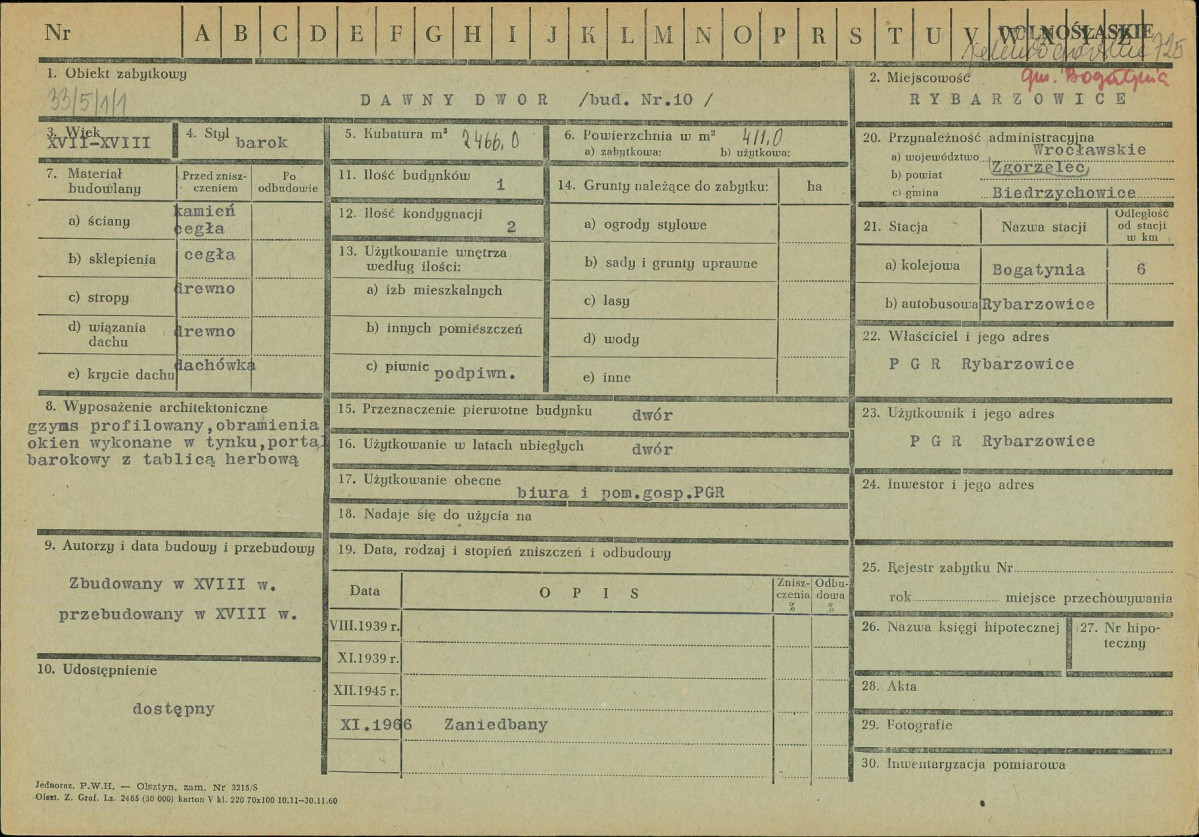 Nr A B C D E F G H I J K L M N O P R S T U V W Y Z
DOLNOŚLĄSKIE
725
1. Obiekt zabytkowy
33/5/1/1
DAWNY DWOR /bud. Nr.10 /
2. Miejscowość
gm. Bogatynia
RYBARZOWICE
3. Wiek
XVII-XVIII
4. Styl
barok
5. Kubatura m³
2466,0
6. Powierzchnia w m²
411,0
a) zabytkowa: b) użytkowa:
20. Przynależność administracyjna
a) województwo Wrocławskie
b) powiat Zgorzelec
c) gmina Biedrzychowice
7. Materiał budowlany
Przed zniszczeniem
Po odbudowie
a) ściany kamień cegła
b) sklepienia cegła
c) stropy drewno
d) wiązania dachu drewno
e) krycie dachu dachówka
11. Ilość budynków 1
12. Ilość kondygnacji 2
13. Użytkowanie wnętrza według ilości:
a) izb mieszkalnych
b) innych pomieszczeń
c) piwnic podpiwn.
14. Grunty należące do zabytku: ha
a) ogrody stylowe
b) sady i grunty uprawne
c) lasy
d) wody
e) inne
21. Stacja Nazwa stacji Odległość od stacji w km
a) kolejowa Bogatynia 6
b) autobusowa Rybarzowice
22. Właściciel i jego adres
P G R Rybarzowice
8. Wyposażenie architektoniczne
gzyms profilowany,obramienia
okien wykonane w tynku,portal
barokowy z tablicą herbową
15. Przeznaczenie pierwotne budynku dwór
16. Użytkowanie w latach ubiegłych dwór
17. Użytkowanie obecne
biura i pom.gosp.PGR
18. Nadaje się do użycia na
23. Użytkownik i jego adres
P G R Rybarzowice
24. Inwestor i jego adres
9. Autorzy i data budowy i przebudowy
Zbudowany w XVIII w.
przebudowany w XVIII w.
10. Udostępnienie
dostępny
19. Data, rodzaj i stopień zniszczeń i odbudowy
Data OPIS Zniszczenia % Odbudowa %
VIII.1939 r.
XI.1939 r.
XII.1945 r.
XI.1966 Zaniedbany
25. Rejestr zabytku Nr
rok miejsce przechowywania
26. Nazwa księgi hipotecznej
27. Nr hipoteczny
28. Akta
29. Fotografie
30. Inwentaryzacja pomiarowa
Jednoraz. P.W.H. — Olsztyn, zam. Nr 3215/S
Olszt. Z. Graf. Lz. 2485 (30 000) karton V kl. 220 70x100 10.11—30.11.60